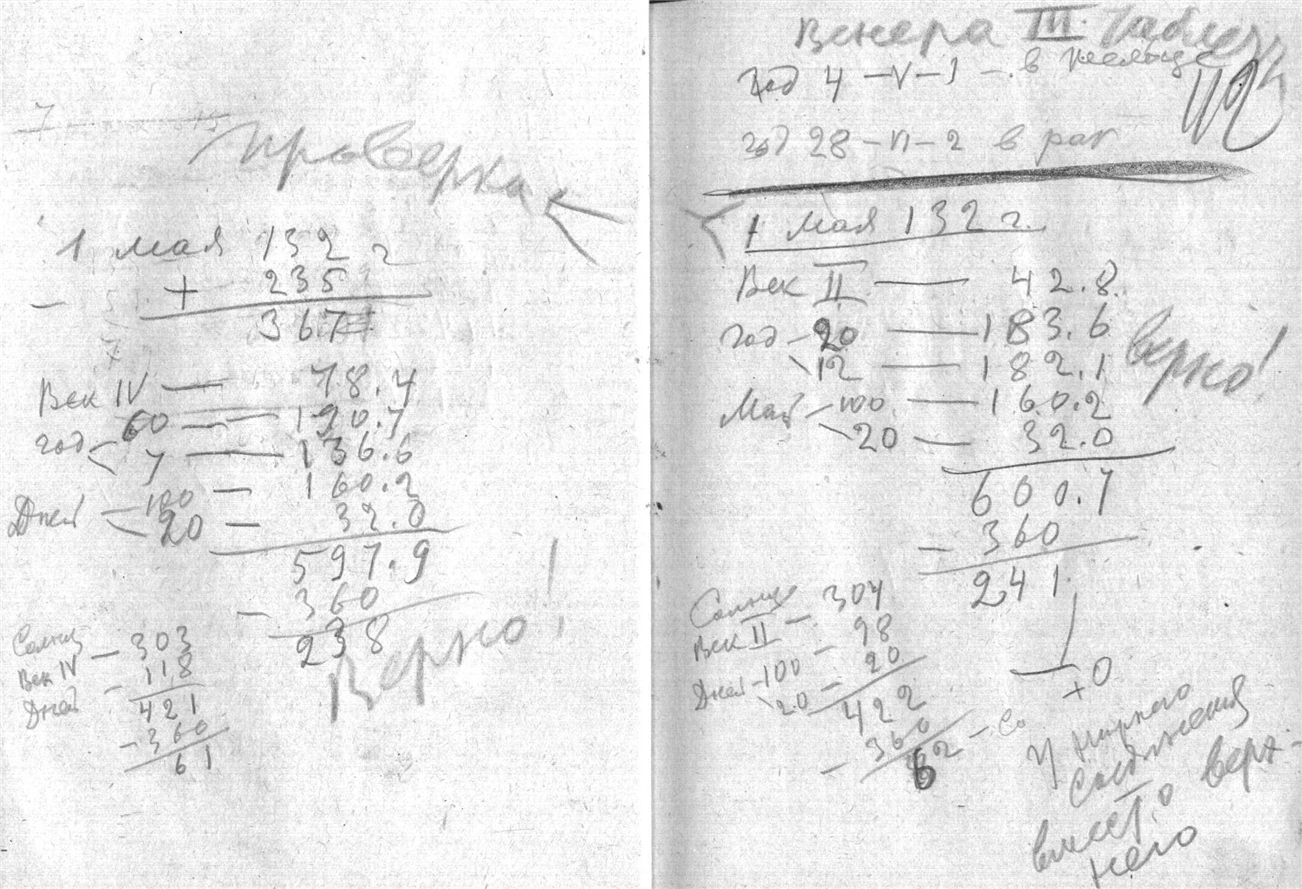 Проверка
1 мая 132 г
+ 235
367
Век IV — 78.4
год 60 — 190.7
7 — 136.6
Дней — 100 — 160.2
20 — 32.0
597.9
— 360
238
Верно!
Солнц
Век IV — 303
Дней — 118
421
- 360
61
Венера III.
год 4 — V — 1 — в
год 28 — II — 2 в рак
1 мая 132 г.
Век II — 42.8
год — 20 — 183.6
12 — 182.1
верно!
Май — 100 — 160.2
20 — 32.0
600.7
— 360
241
Солнце
Век II — 304
Дней — 100 — 98
20 — 20
422
— 360
62
+0
У нижнего
соединения
вместо верх-
него